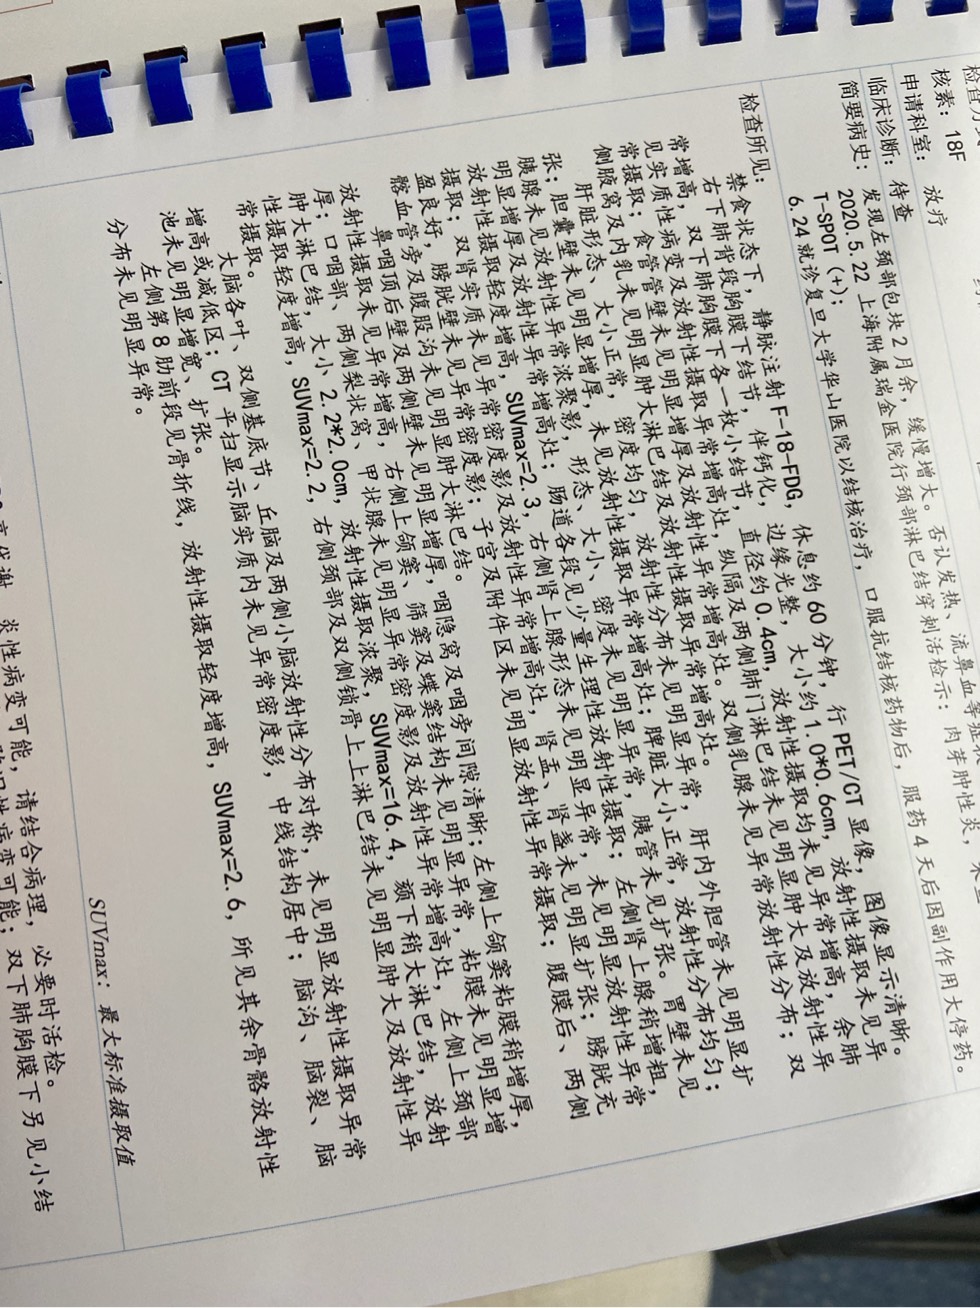 核素： 18F
申请科室： 放疗
临床诊断： 待查
简要病史： 发现左颈部包块2月余，缓慢增大。否认发热、流鼻血等
2020.5.22 上海附属瑞金医院行颈部淋巴结穿刺活检示：肉芽肿性炎，
T-SPOT（+）；
6.24就诊复旦大学华山医院以结核治疗，口服抗结核药物后，服药4天后因副作用大停药。
检查所见：
禁食状态下，静脉注射F-18-FDG，休息约60分钟，行PET/CT显像，图像显示清晰。
右下肺背段胸膜下结节，伴钙化，边缘光整，大小约1.0*0.6cm，放射性摄取未见异
常增高，双下肺胸膜下各一枚小结节，直径约0.4cm，放射性摄取均未见异常增高，余肺
见实质性病变及放射性摄取异常增高灶，纵隔及两侧肺门淋巴结未见明显肿大及放射性异
常摄取；食管管壁未见明显增厚及放射性异常增高灶。双侧乳腺未见异常放射性分布；双
侧腋窝及内乳未见明显肿大淋巴结及放射性摄取异常增高灶。
肝脏形态、大小正常，密度均匀，放射性分布未见明显异常，肝内外胆管未见明显扩
张；胆囊壁未见明显增厚，未见放射性摄取异常增高灶；脾脏大小正常，放射性分布均匀；
胰腺未见放射性异常浓聚影，形态、大小、密度未见明显异常，胰管未见扩张。胃壁未见
明显增厚及放射性异常增高灶；肠道各段见少量生理性放射性摄取；左侧肾上腺稍增粗，
放射性摄取轻度增高，SUVmax=2.3，右侧肾上腺形态未见明显异常，未见明显放射性异常
摄取；双肾实质未见异常密度影及放射性异常增高灶，肾盂、肾盏未见明显扩张；膀胱充
盈良好，膀胱壁未见异常密度影；子宫及附件区未见明显放射性异常摄取；腹膜后、两侧
髂血管旁及腹股沟未见明显肿大淋巴结。
鼻咽顶后壁及两侧壁未见明显增厚，咽隐窝及咽旁间隙清晰；左侧上颌窦粘膜稍增厚，
放射性摄取未见异常增高，右侧上颌窦、筛窦及蝶窦结构未见明显异常，粘膜未见明显增
厚；口咽部、两侧梨状窝、甲状腺未见明显异常密度影及放射性异常增高灶，左侧上颈部
肿大淋巴结，大小2.2*2.0cm，放射性摄取浓聚，SUVmax=16.4，颏下稍大淋巴结，放射
性摄取轻度增高，SUVmax=2.2，右侧颈部及双侧锁骨上淋巴结未见明显肿大及放射性异
常摄取。
大脑各叶、双侧基底节、丘脑及两侧小脑放射性分布对称，未见明显放射性摄取异常
增高或减低区；CT平扫显示脑实质内未见异常密度影，中线结构居中；脑沟、脑裂、脑
池未见明显增宽、扩张。
左侧第8肋前段见骨折线，放射性摄取轻度增高，SUVmax=2.6，所见其余骨骼放射性
分布未见明显异常。
SUVmax：最大标准摄取值
高代谢，炎性病变可能，请结合病理，必要时活检。
陈旧性病变可能；双下肺胸膜下另见小结